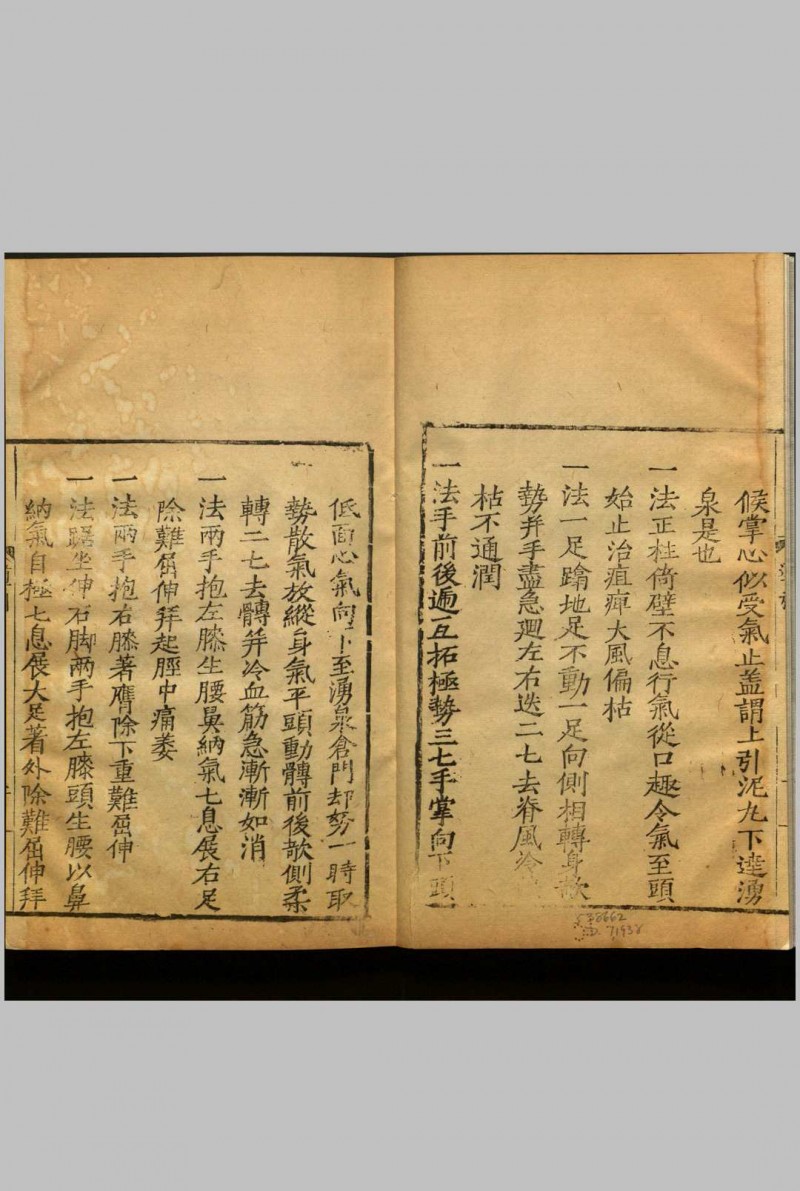 候掌心似受氣止蓋謂上引泥丸下達湧
泉是也
一法正柱倚壁不息行氣從口趣令氣至頭
始止治疽痺大風偏枯
一法一足踰地足不動一足向側相轉身欹
勢幷手盡急廻左右迭二七去脊風冷
枯不通潤
一法手前後遞互拓極勢三七手掌向下頭
低面心氣向下至湧泉倉門却努一時取
勢散氣放縱身氣平頭動髆前後欹側柔
轉二七去髆幷冷血筋急漸漸如消
一法兩手抱左膝生腰鼻納氣七息展右足
除難屈伸拜起脛中痛萎
一法兩手抱右膝著膺除下重難屈伸
一法踞坐伸右脚兩手抱左膝頭生腰以鼻
納氣自極七息展大足著外除難屈伸拜
538662
D. 71938